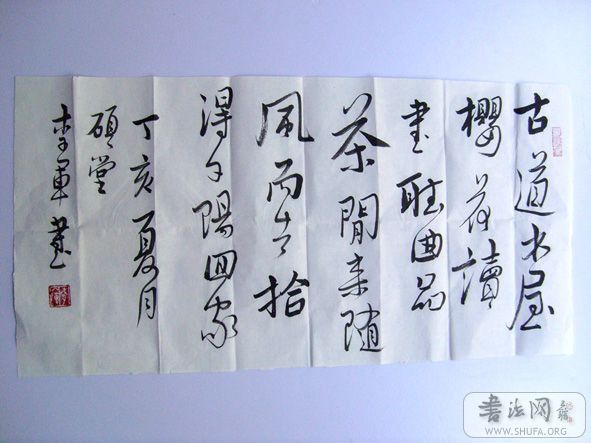 古道木屋
櫻花讀
書聽曲品
茶閒来随
風而去拾
得夕陽回家
丁亥夏月
碩堂
李軍書
书法网
WWW.SHUFA.ORG